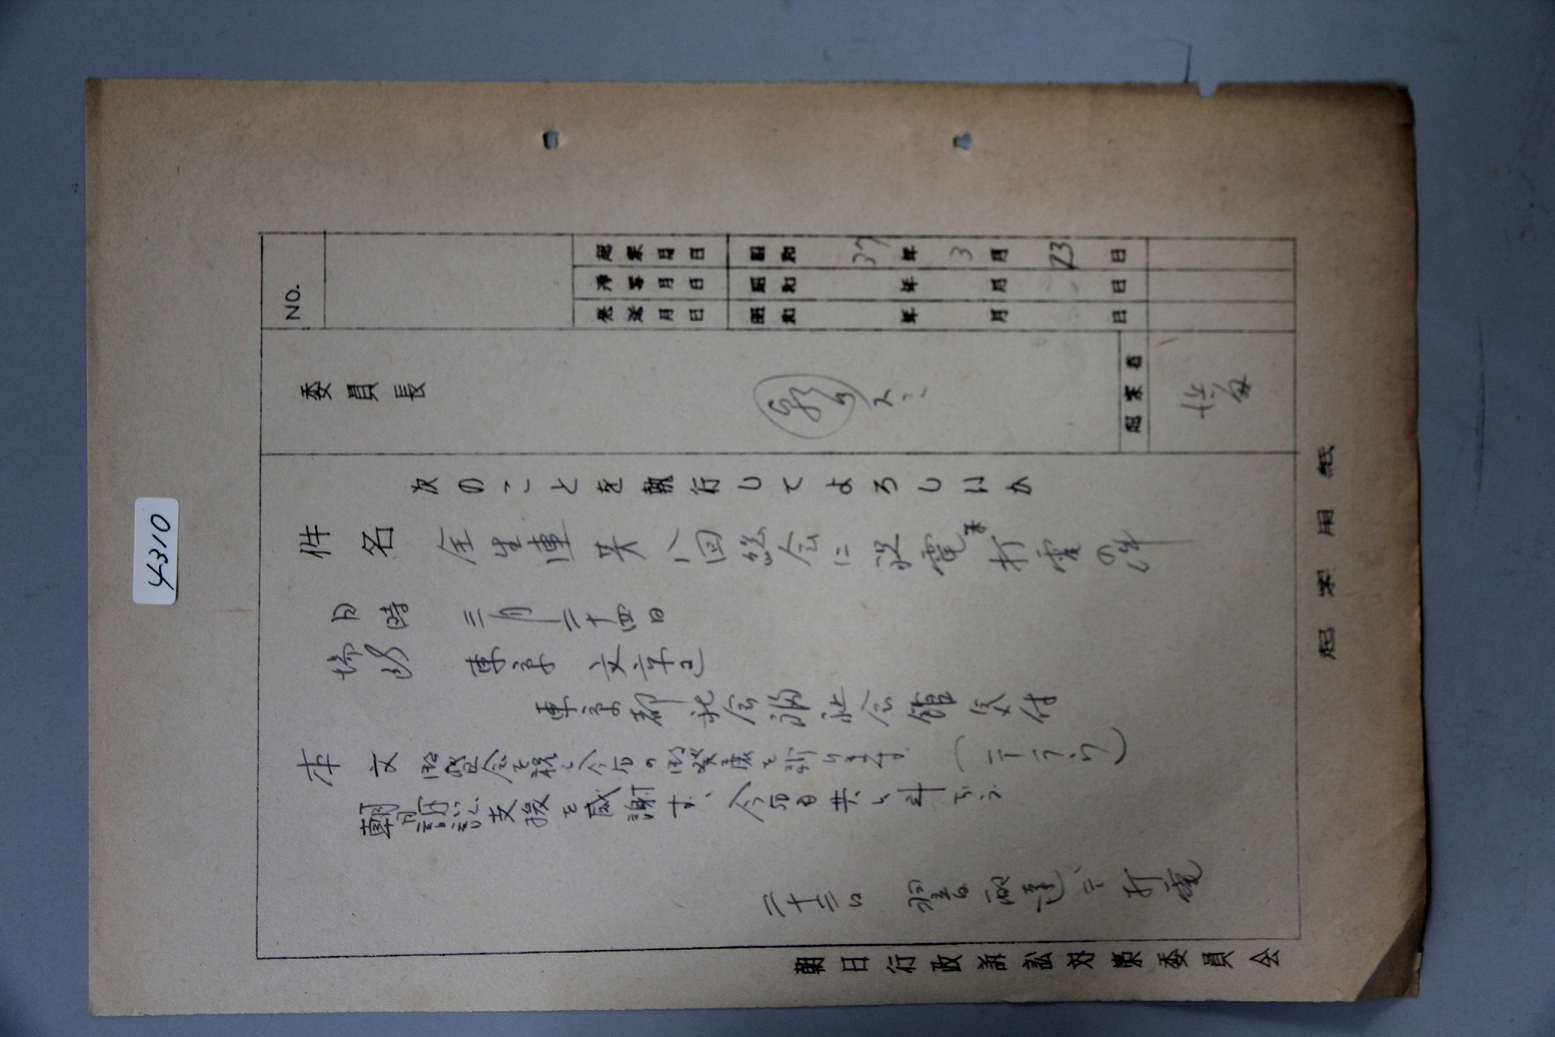 4310
起案用紙
NO.
起案月日 昭和 37年 3月 23日
浄写月日 昭和 年 月 日
発送月日 昭和 年 月 日
委員長
起案者
次のことを執行してよろしいか
件名 全生連第八回総会に祝電打電の件
日時 三月二十四日
場所 東京 文京区
東京都社会福祉会館気付
本文 御盛会を祝し今后の御発展を祈ります
朝日訴訟支援を感謝す、今后も共に斗おう
二十三日 翌日配達で打電
朝日行政訴訟対策委員会